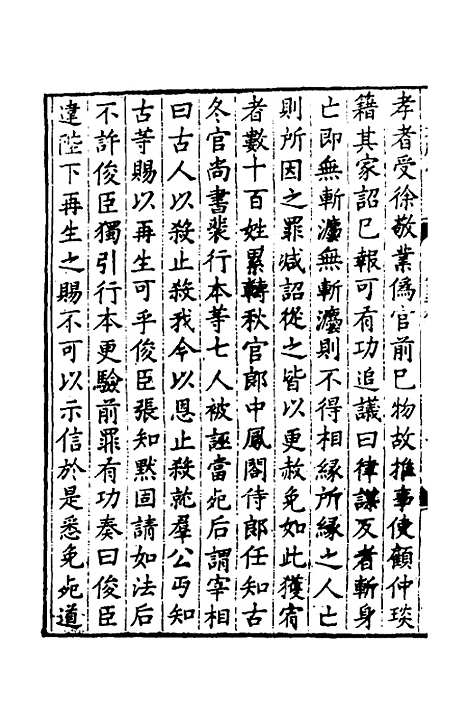 孝者受徐敬業偽官前已物故推事使顧仲琰
籍其家詔已報可有功追議曰律謀反者斬身
亡即無斬灋無斬灋則不得相緣所緣之人亡
則所因之罪减詔從之皆以更赦免如此獲宥
者數十百姓累轉秋官郎中鳳閣侍郎任知古
冬官尚書裴行本等七人被誣當𣦸后謂宰相
曰古人以殺止殺我今以恩止殺就羣公丐知
古等賜以再生可乎俊臣張知默固請如法后
不許俊臣獨引行本更驗前罪有功奏曰俊臣
違陛下再生之賜不可以示信於是悉免𣦸道